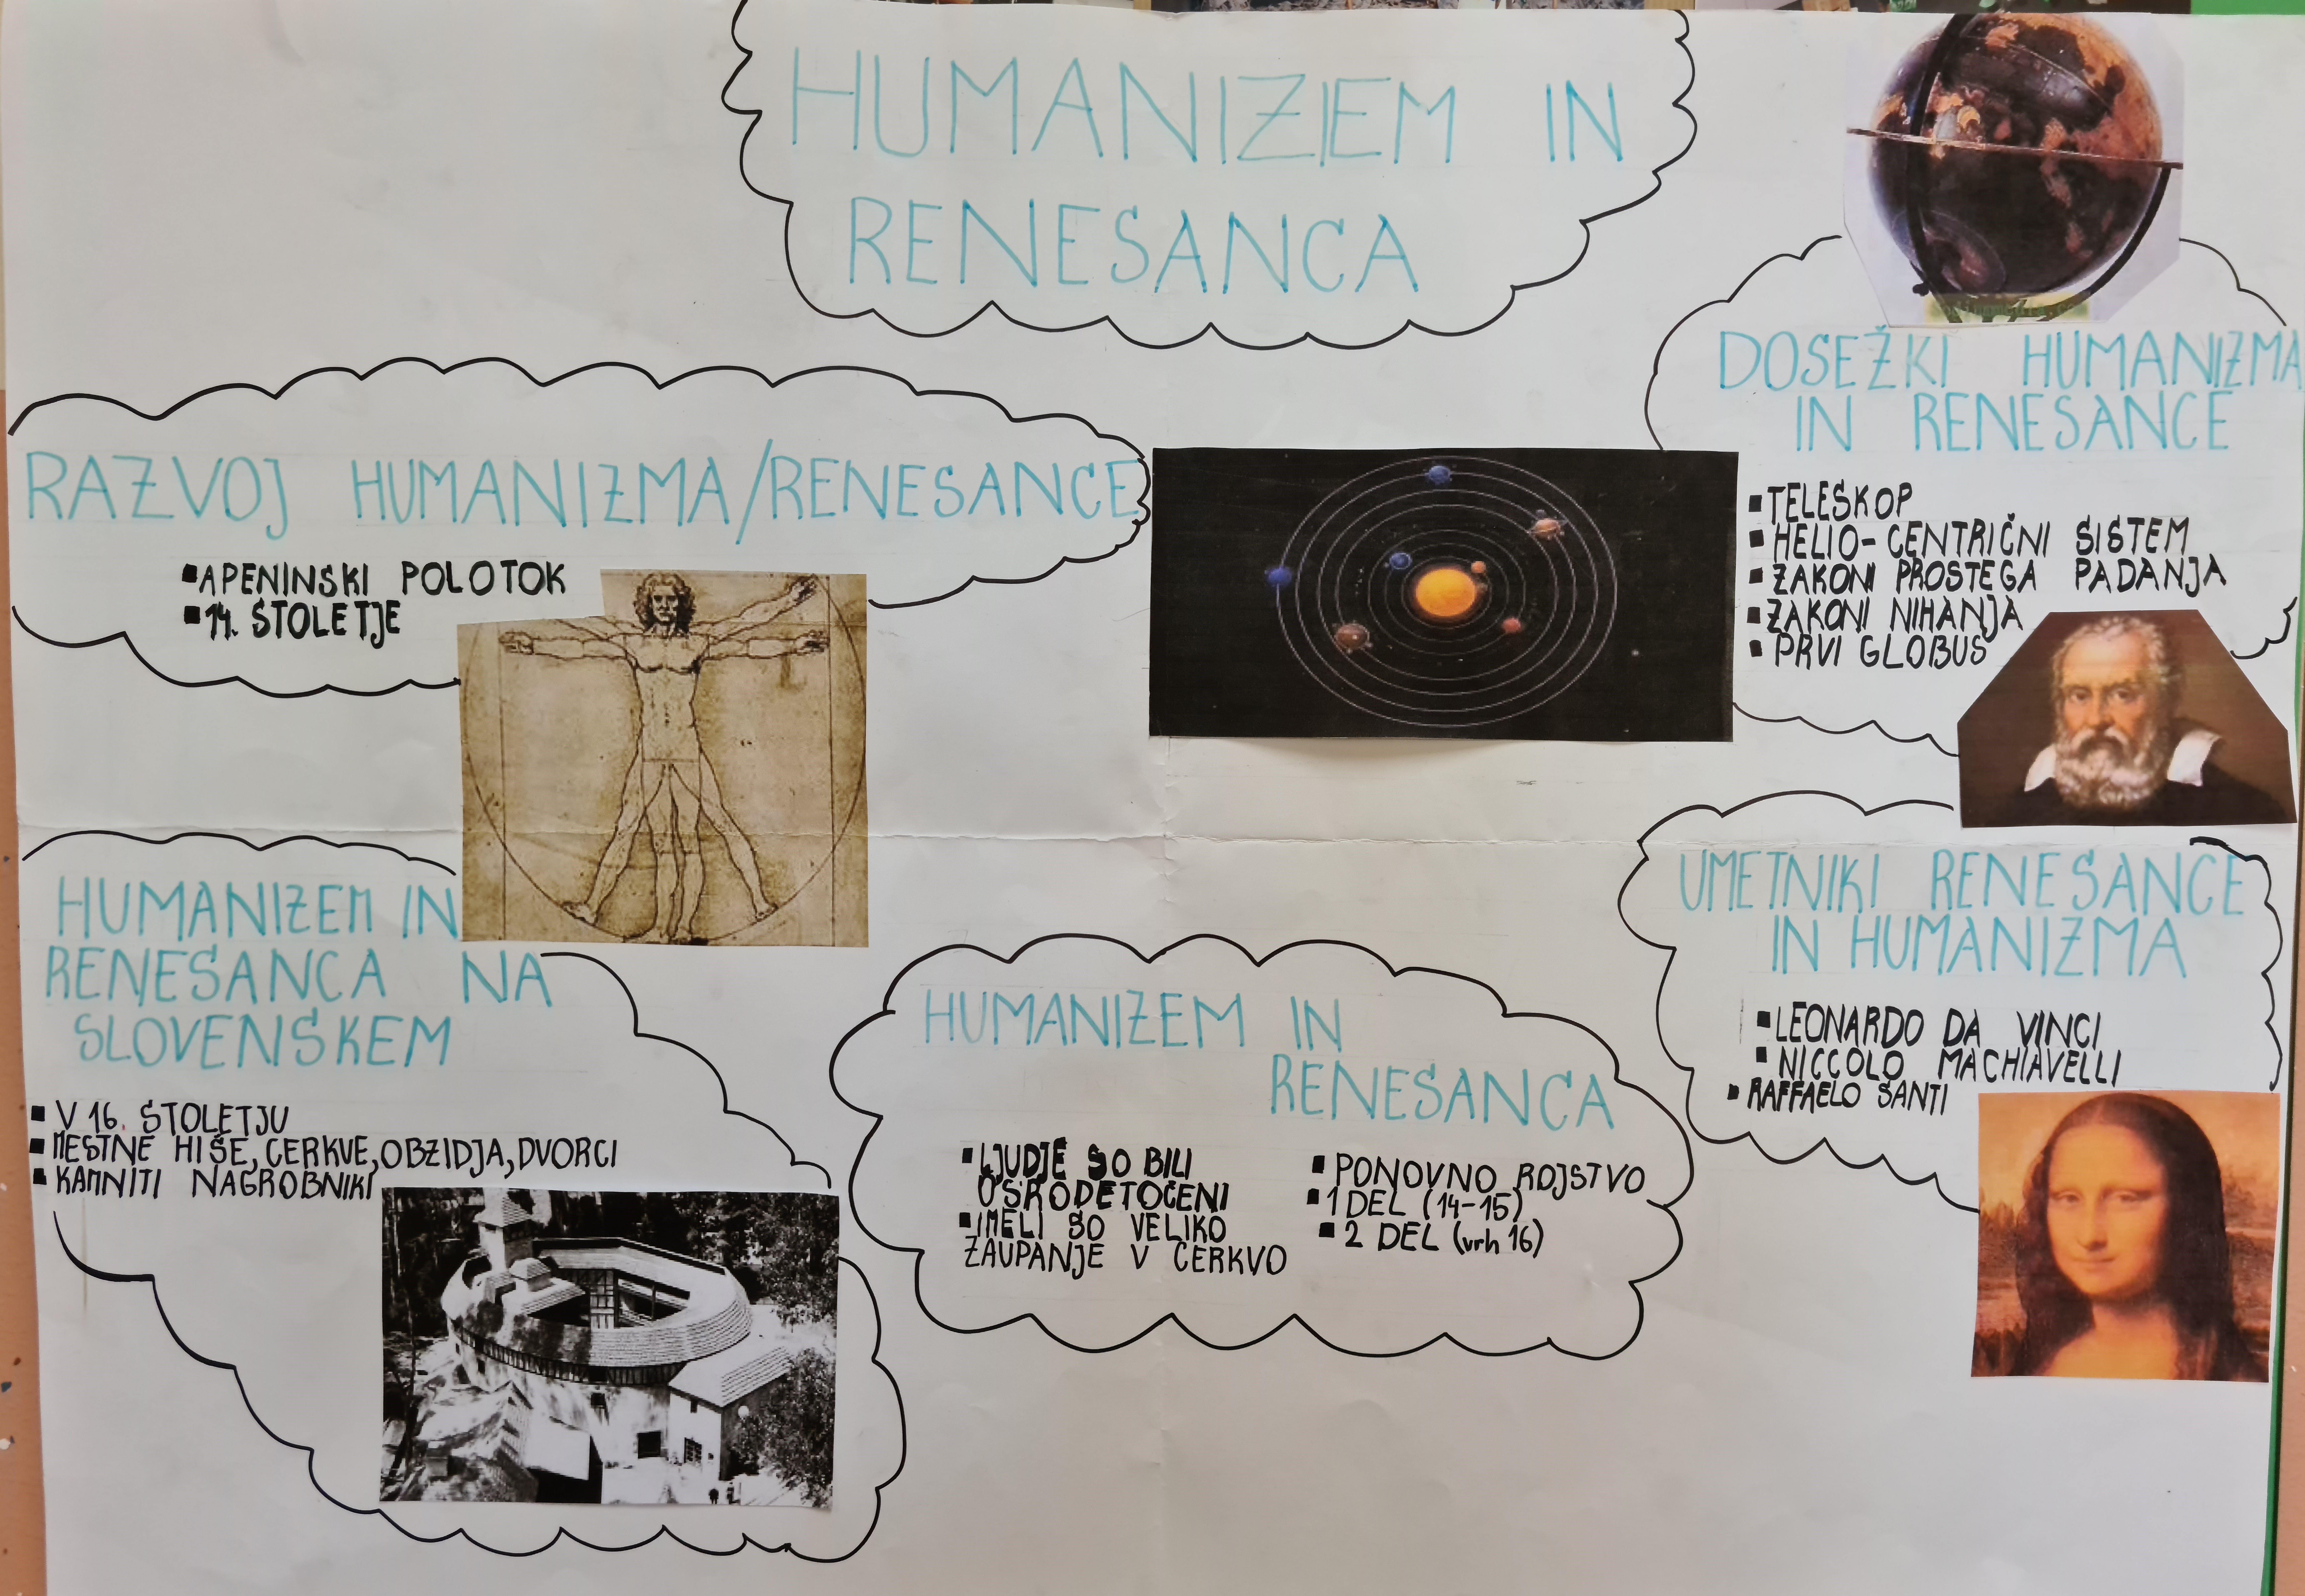 HUMANIZEM IN
RENESANCA
RAZVOJ HUMANIZMA/RENESANCE
▪APENINSKI POLOTOK
▪14. STOLETJE
DOSEŽKI HUMANIZMA
IN RENESANCE
▪TELESKOP
▪HELIO-CENTRIČNI SISTEM
▪ZAKONI PROSTEGA PADANJA
▪ZAKONI NIHANJA
▪PRVI GLOBUS
HUMANIZEM IN
RENESANCA NA
SLOVENSKEM
▪V 16. STOLETJU
▪MESTNE HIŠE, CERKVE, OBZIDJA, DVORCI
▪KAMNITI NAGROBNIKI
HUMANIZEM IN
RENESANCA
▪LJUDJE SO BILI
OSRODETOČENI
▪IMELI SO VELIKO
ZAUPANJE V CERKVO
▪PONOVNO ROJSTVO
▪1 DEL (14-15)
▪2 DEL (vrh 16)
UMETNIKI RENESANCE
IN HUMANIZMA
▪LEONARDO DA VINCI
▪NICCOLO MACHIAVELLI
▪RAFFAELO SANTI